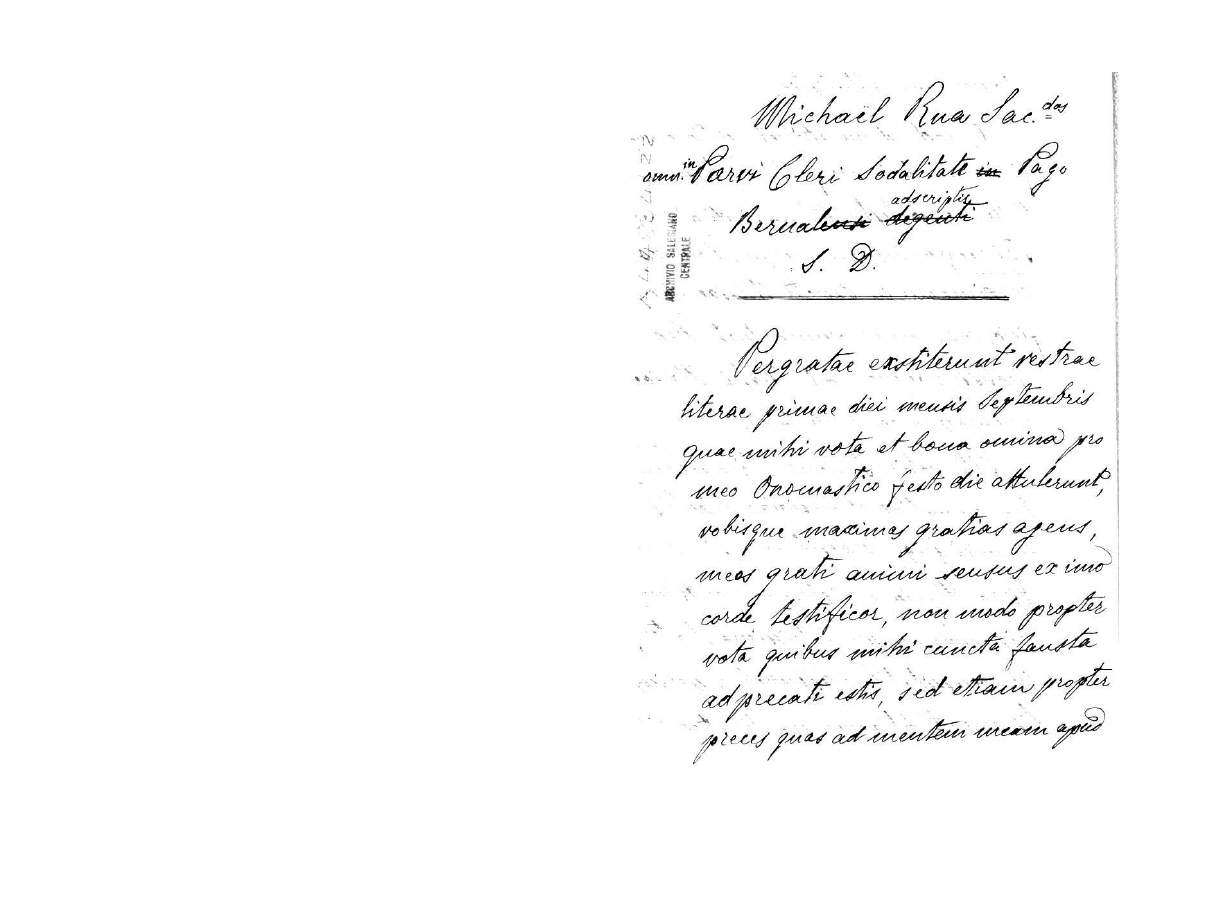 Michael Rua Sac.dos
omn. in Parvi Cleri Sodalitate in Pago
adscriptis
Bernalensi degenti
S. D.
ARCHIVIO SALESIANO
CENTRALE
Pergratae exstiterunt vestrae
literae primae diei mensis Septembris
quae mihi vota et bona omina pro
meo Onomastico festo die attulerunt,
vobisque maximas gratias agens,
meos grati animi sensus ex imo
corde testificor, non modo propter
vota quibus mihi cuncta fausta
adprecati estis, sed etiam propter
preces quas ad mentem meam apud